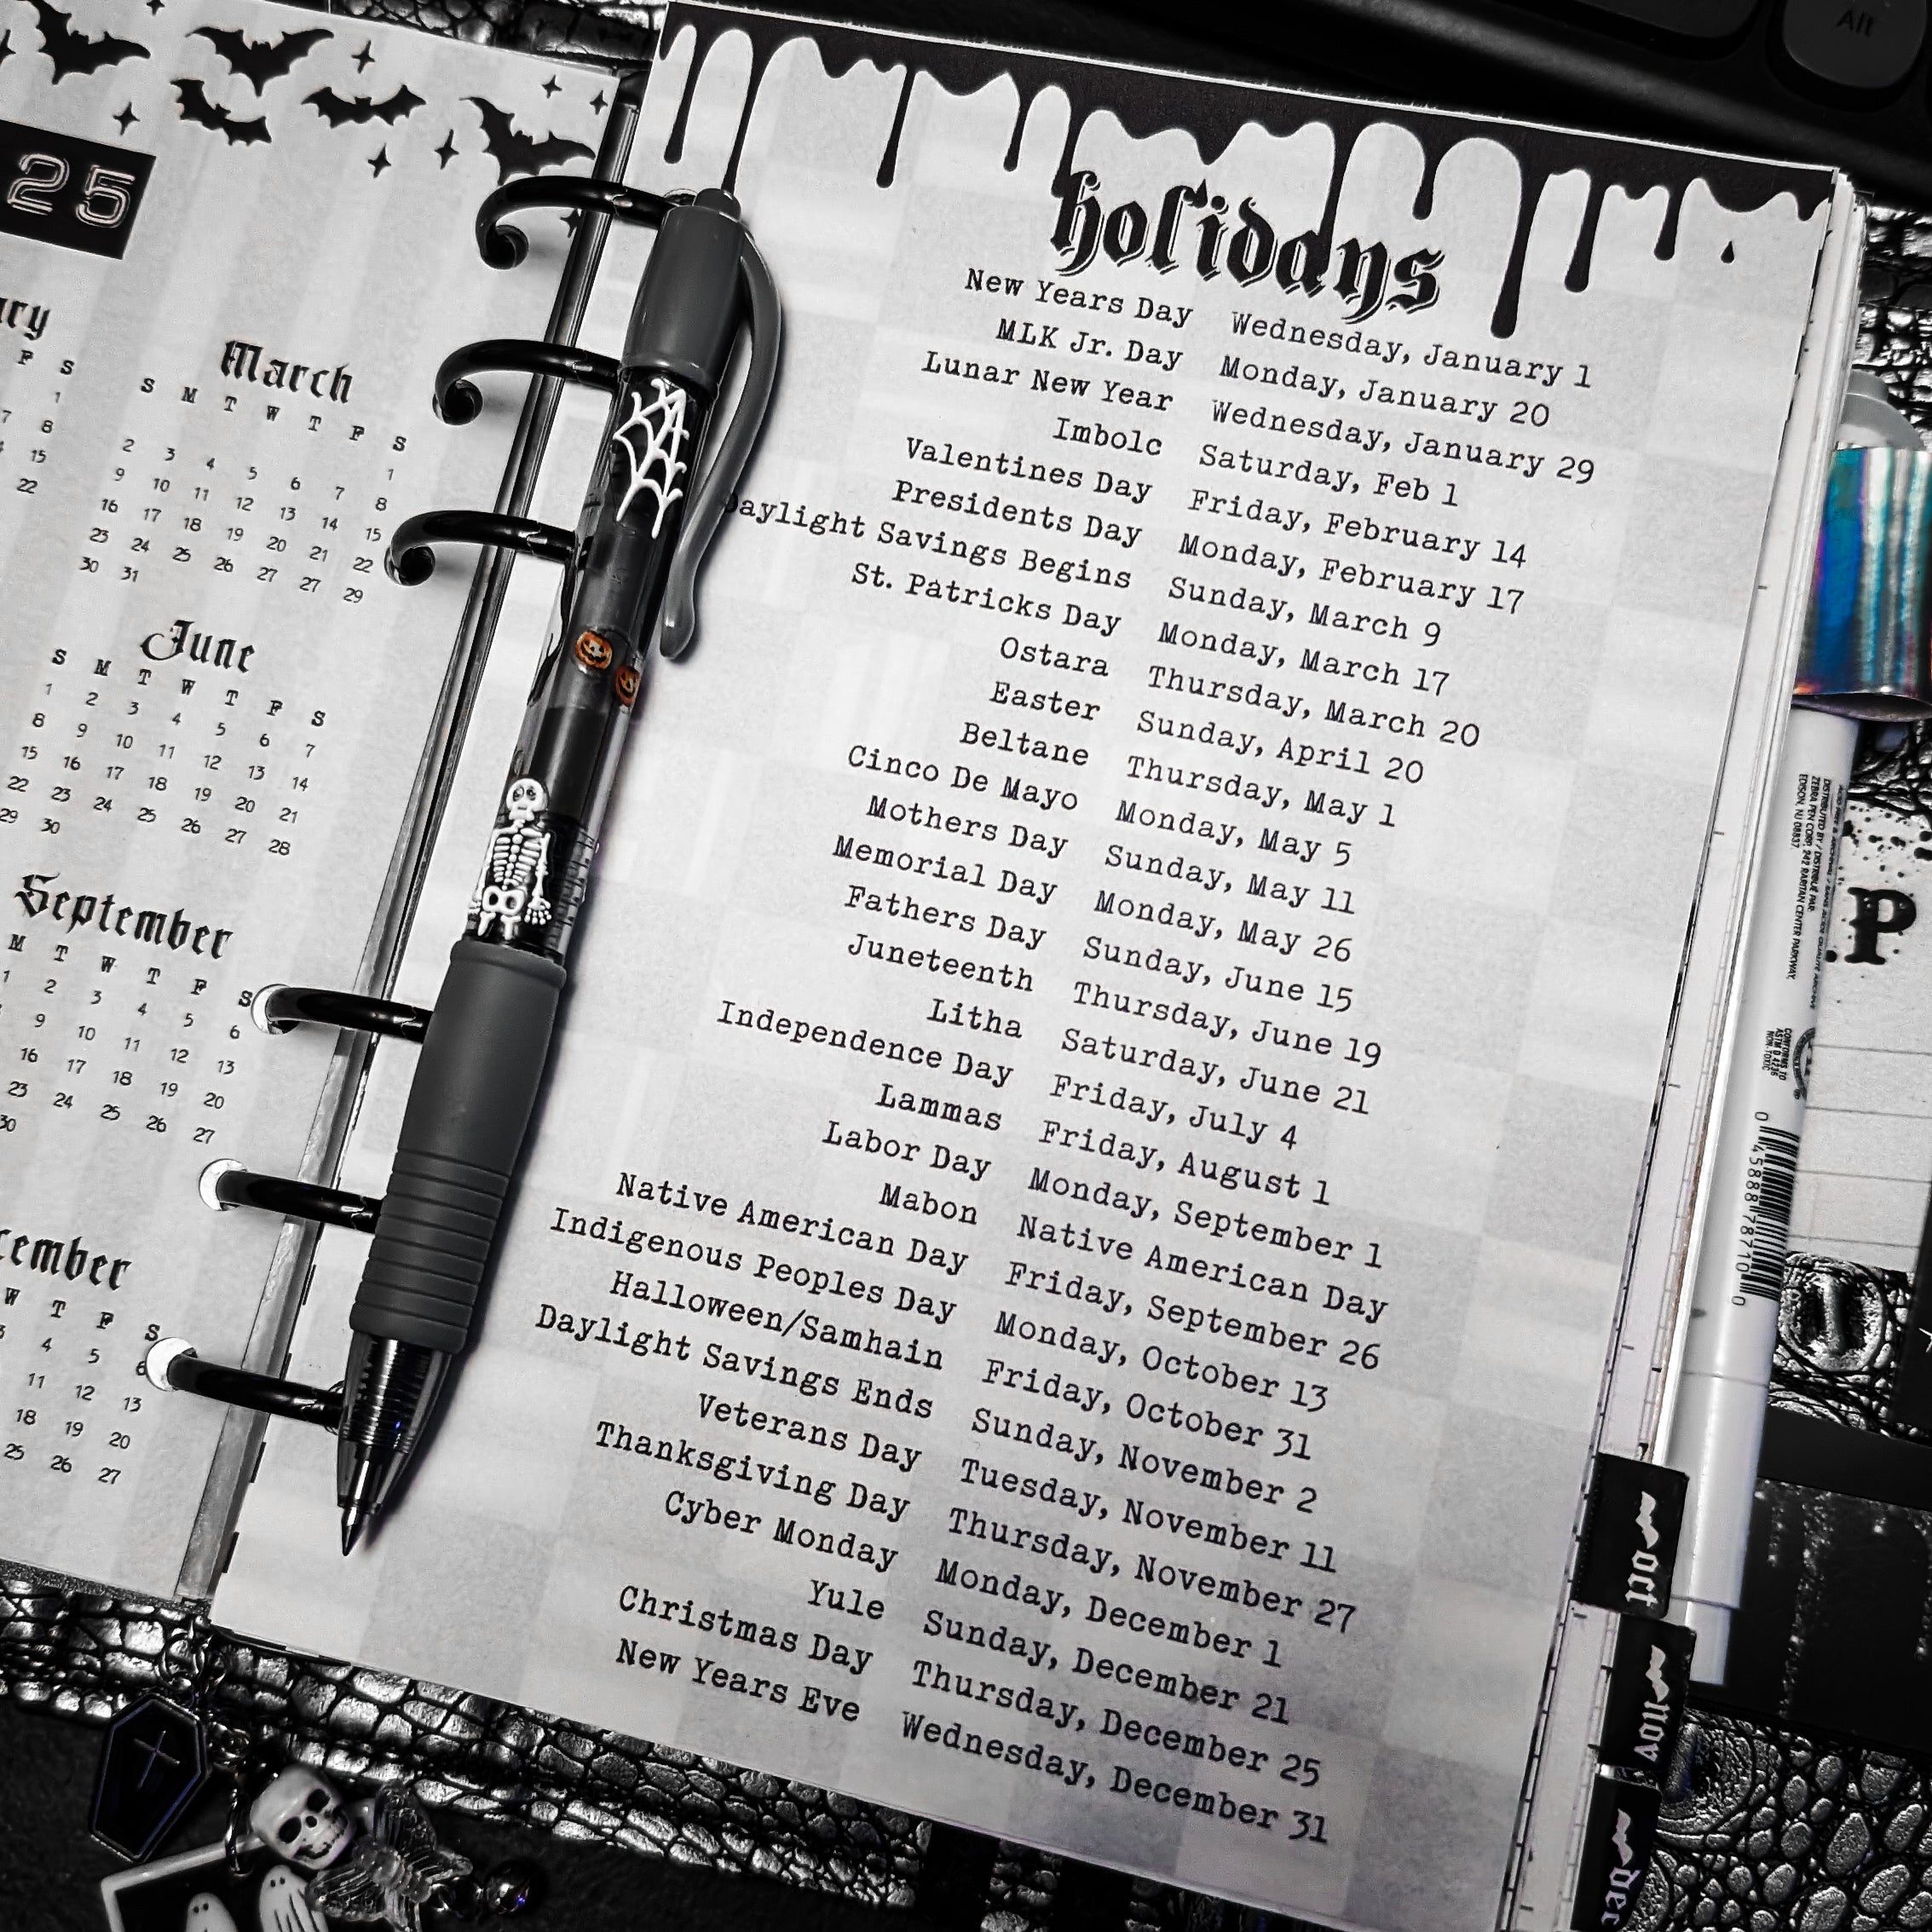 25
ry
F S
1
7 8
15
22
March
S M T W T F S
1
2 3 4 5 6 7 8
9 10 11 12 13 14 15
16 17 18 19 20 21 22
23 24 25 26 27 27 29
30 31
June
S M T W T F S
1 2 3 4 5 6 7
8 9 10 11 12 13 14
15 16 17 18 19 20 21
22 23 24 25 26 27 28
29 30
September
M T W T F S
1 2 3 4 5 6
9 10 11 12 13
16 17 18 19 20
23 24 25 26 27
30
cember
W T F S
3 4 5 6
11 12 13
18 19 20
25 26 27
holidays
New Years Day Wednesday, January 1
MLK Jr. Day Monday, January 20
Lunar New Year Wednesday, January 29
Imbolc Saturday, Feb 1
Valentines Day Friday, February 14
Presidents Day Monday, February 17
Daylight Savings Begins Sunday, March 9
St. Patricks Day Monday, March 17
Ostara Thursday, March 20
Easter Sunday, April 20
Beltane Thursday, May 1
Cinco De Mayo Monday, May 5
Mothers Day Sunday, May 11
Memorial Day Monday, May 26
Fathers Day Sunday, June 15
Juneteenth Thursday, June 19
Litha Saturday, June 21
Independence Day Friday, July 4
Lammas Friday, August 1
Labor Day Monday, September 1
Mabon Native American Day
Native American Day Friday, September 26
Indigenous Peoples Day Monday, October 13
Halloween/Samhain Friday, October 31
Daylight Savings Ends Sunday, November 2
Veterans Day Tuesday, November 11
Thanksgiving Day Thursday, November 27
Cyber Monday Monday, December 1
Yule Sunday, December 21
Christmas Day Thursday, December 25
New Years Eve Wednesday, December 31
oct
nov
dec
Alt
P
DISTRIBUTED BY / DISTRIBUÉ PAR:
ZEBRA PEN CORP., 242 RARITAN CENTER PARKWAY,
EDISON, NJ 08837
CONFORMS TO
ASTM D 4236
NON-TOXIC
0 45888 78710 0